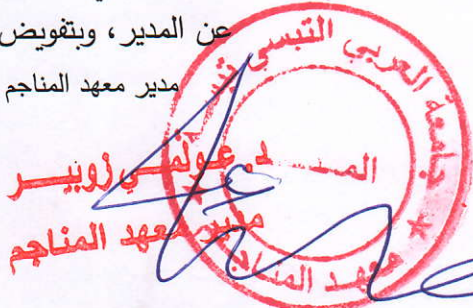 عن المدير، وبتفويض
مدير معهد المناجم
جامعة العربي التبسي
المدير
معهد المناجم
زوبير
مدير معهد المناجم